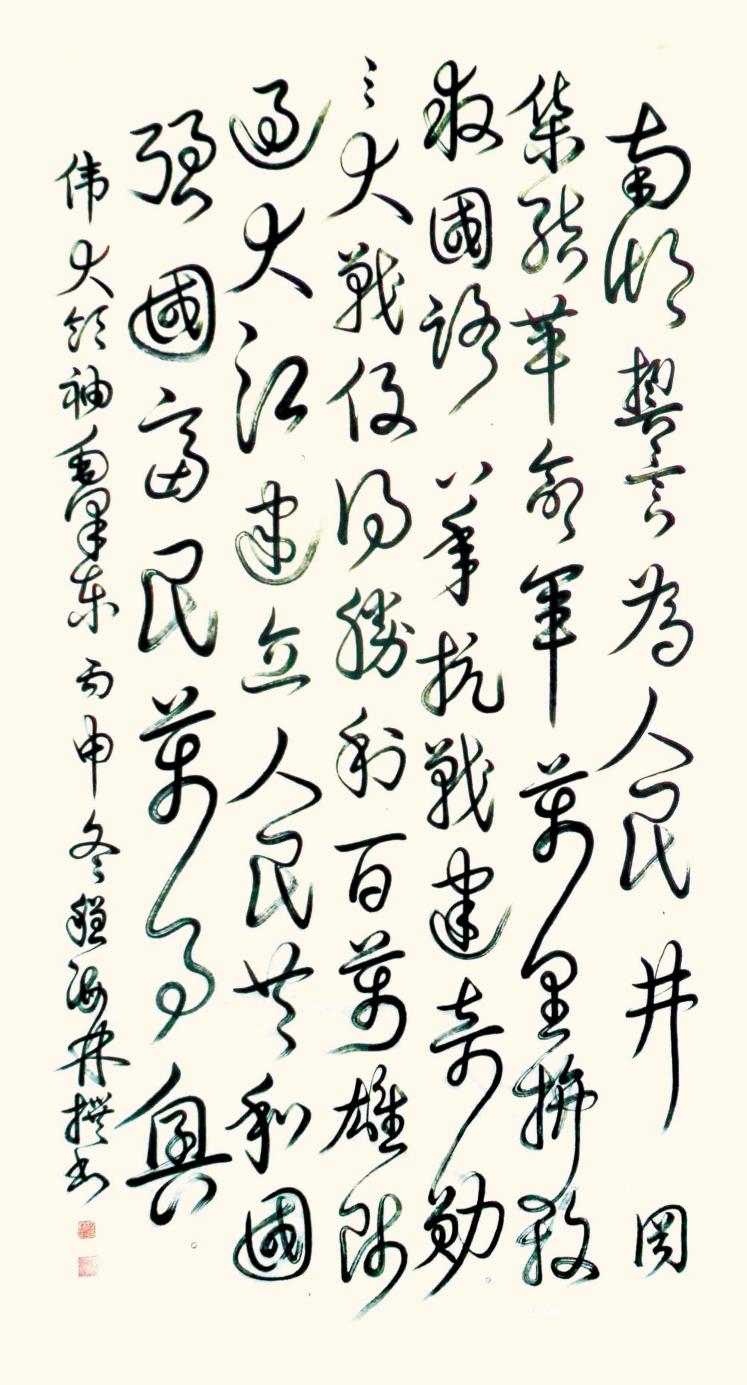 南湖誓言為人民井岡
集結革命軍萬里拚殺
救國路八年抗戰建奇勛
三大戰役得勝利百萬雄師
過大江建立人民共和國
强國富民萬事興
伟大领袖毛澤东丙申冬程海林撰书